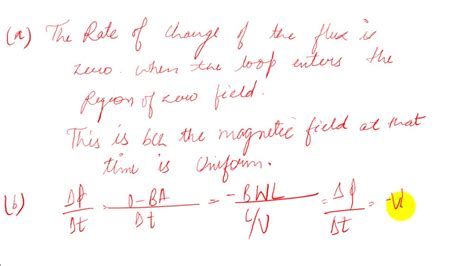 (a) The Rate of change of the flux is
zero. when the loop enters the
Region of zero field.
This is bcz the magnetic field at that
time is Uniform.
(b) Δφ/Δt = 0-BA/Δt = -BWL/L/V = Δφ/Δt = -V